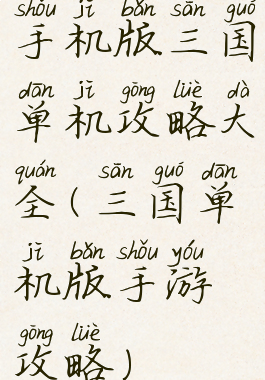 shǒu jī bǎn sān guó
手机版三国
dān jī gōng lüè dà
单机攻略大
quán sān guó dān
全(三国单
jī bǎn shǒu yóu
机版手游
gōng lüè
攻略)